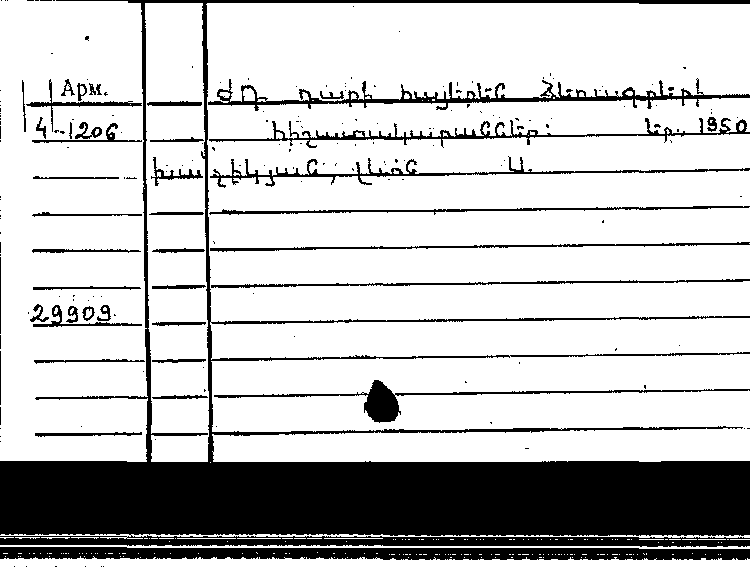 Арм. ԺԴ դարի հայերեն Ձեռագրերի
4-1206 հիշատակարաններ: Եր., 1950
Խաչիկյան, Լևոն Ս.
29909